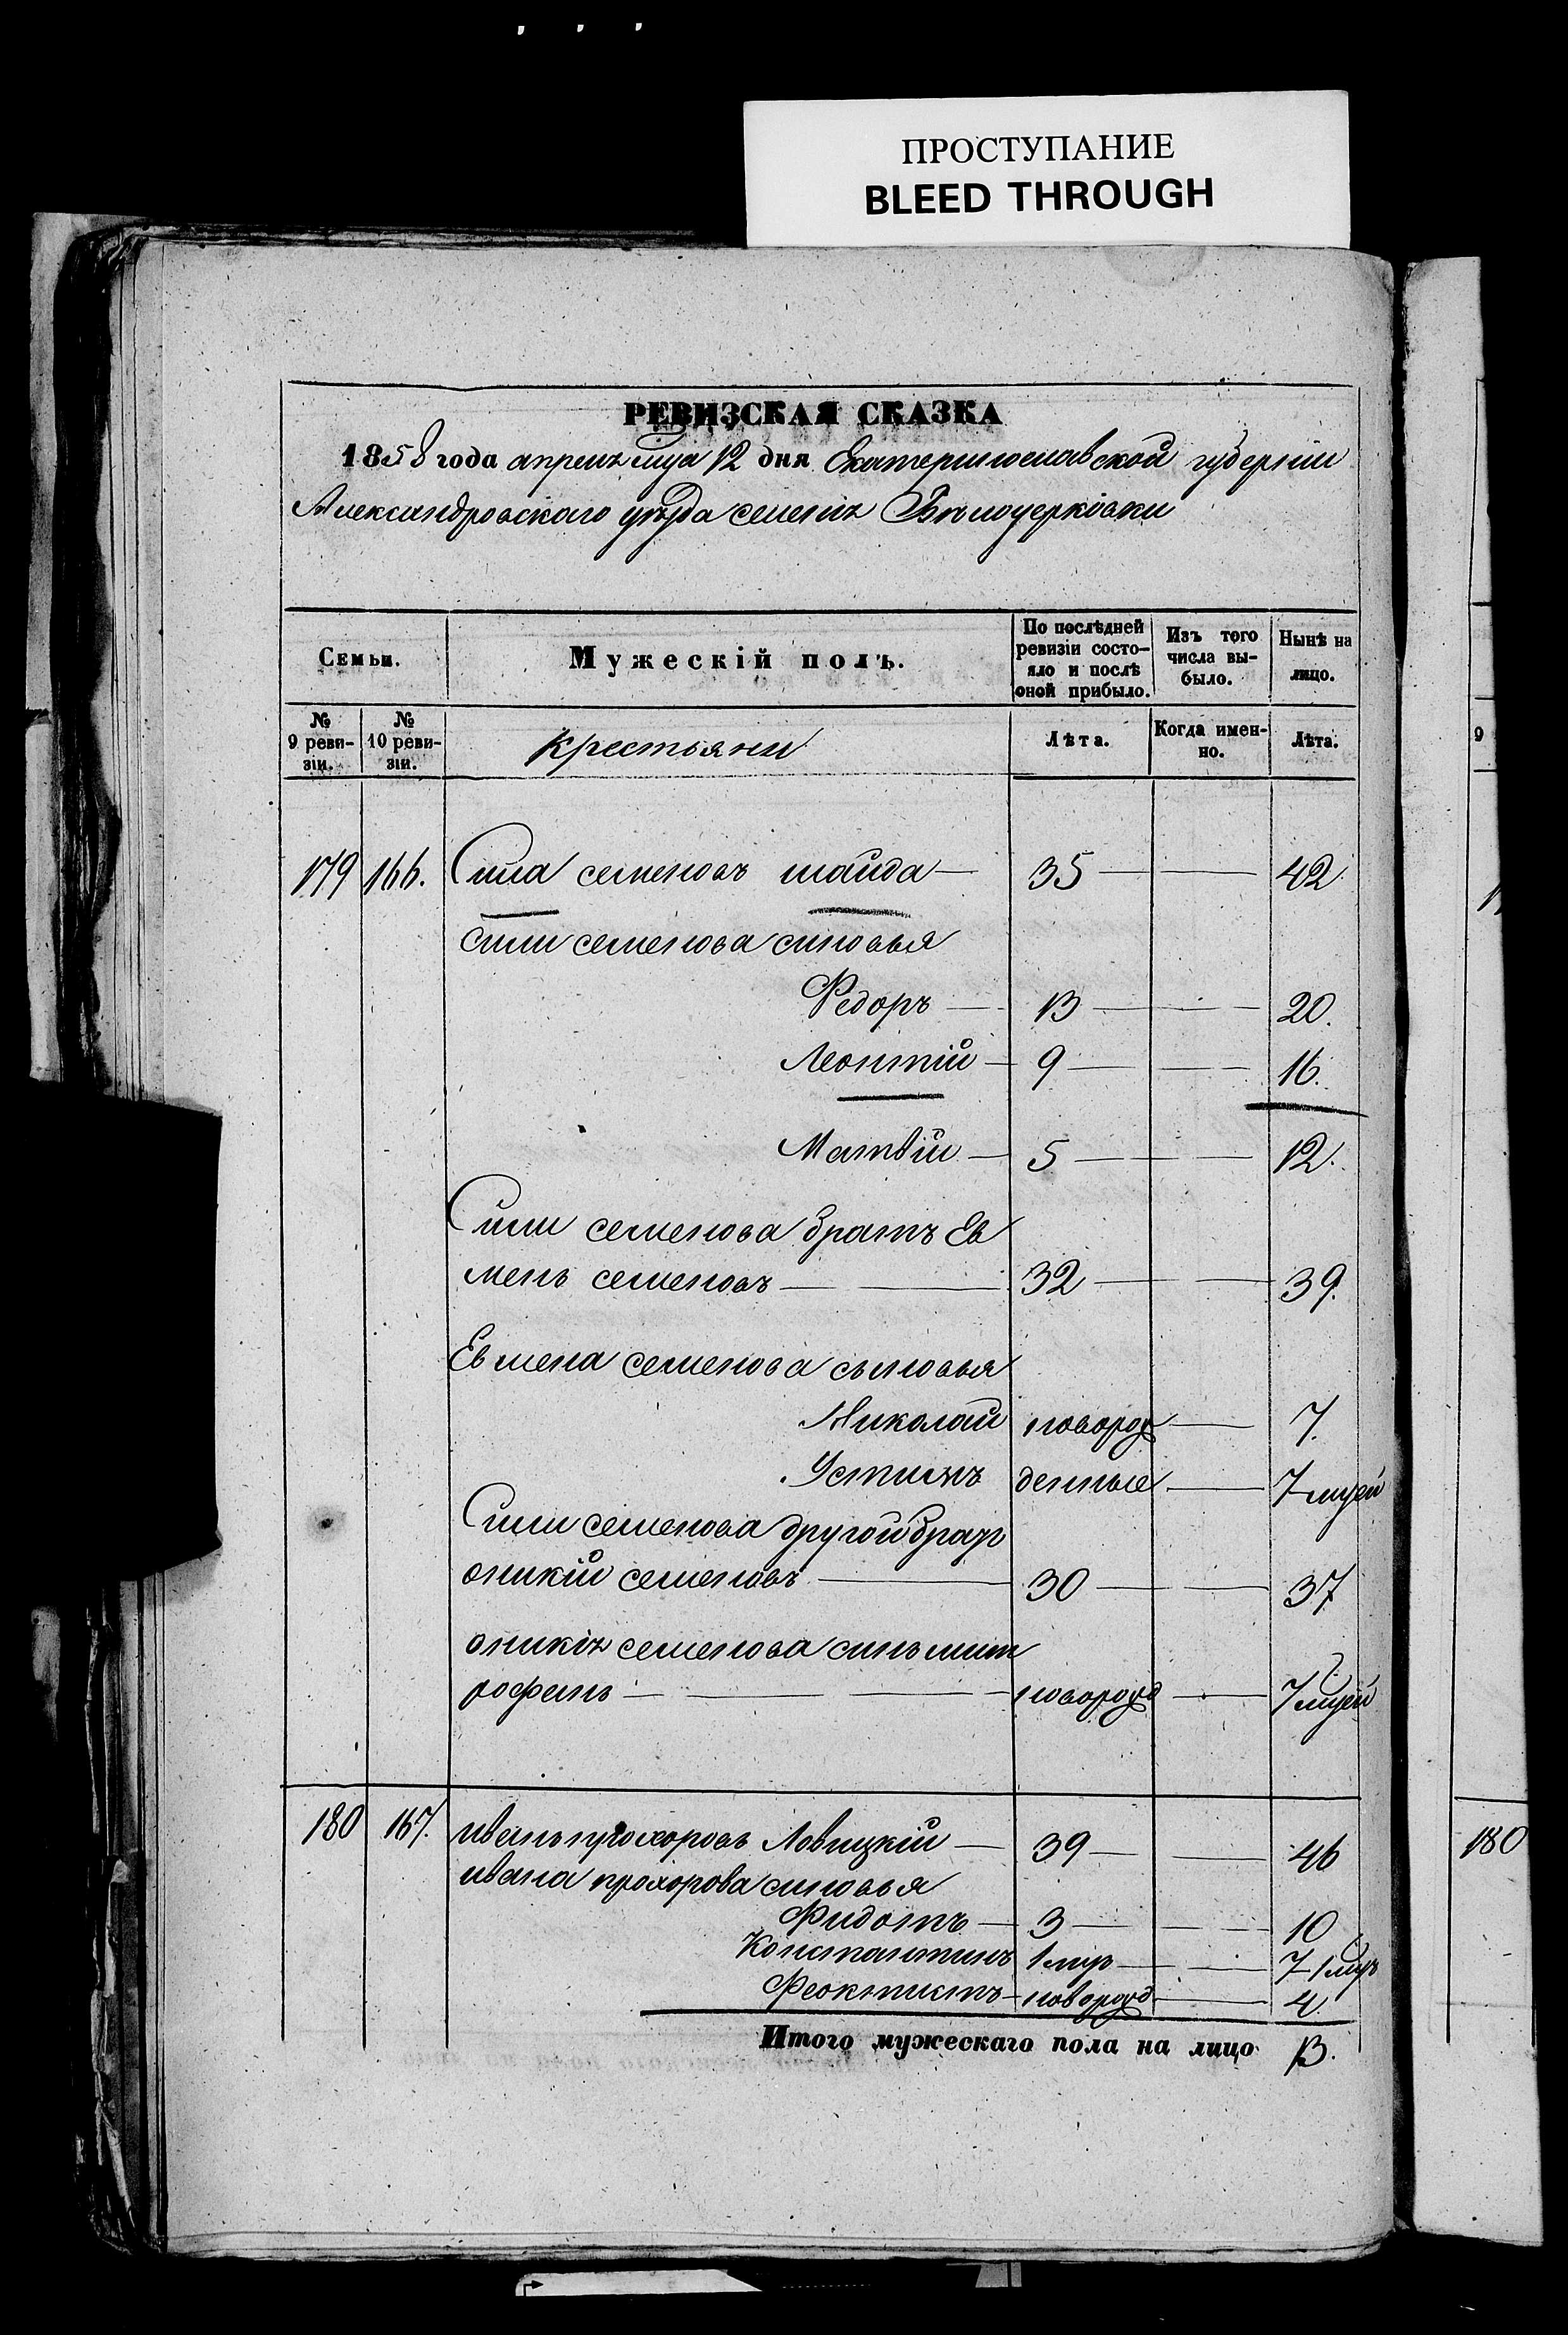 ПРОСТУПАНИЕ
BLEED THROUGH
РЕВИЗСКАЯ СКАЗКА
1858 года апреля мца 12 дня Екатеринославской губернии
Александровскаго уѣзда селения Бѣлоцерковки
Семьи.
Мужескій полъ.
По послѣдней ревизіи состо-
яло и послѣ
оной прибыло.
Изъ того
числа вы-
было.
Нынѣ на
лицо.
№
9 реви-
зіи.
№
10 реви-
зіи.
крестьяни
Лѣта.
Когда имен-
но.
Лѣта.
9
179 166. Сила семеновъ шайда — 35 — 42
сили семенова синовья
Федоръ — 13 — 20.
Леонтій — 9 — 16.
Матвій — 5 — 12.
Сили семенова братъ Ев
мень семеновъ — 32 — 39.
Евмена семенова сыновья
Николай новорож — 7.
Устимъ денные — 7 мцей
Сили семенова другой брат
оникій семеновъ — 30 — 37
оникія семенова синъ мит
рофанъ — новорожд — 7 мцей
180 167. иванъ прохоровъ Ловицкій — 39 — 46
ивана прохорова синовья
Фидотъ — 3 — 10
Константинъ 1 мцъ — 7 1 мцъ
Феоктистъ — новорожд — 4
Итого мужескаго пола на лицо 13.
180